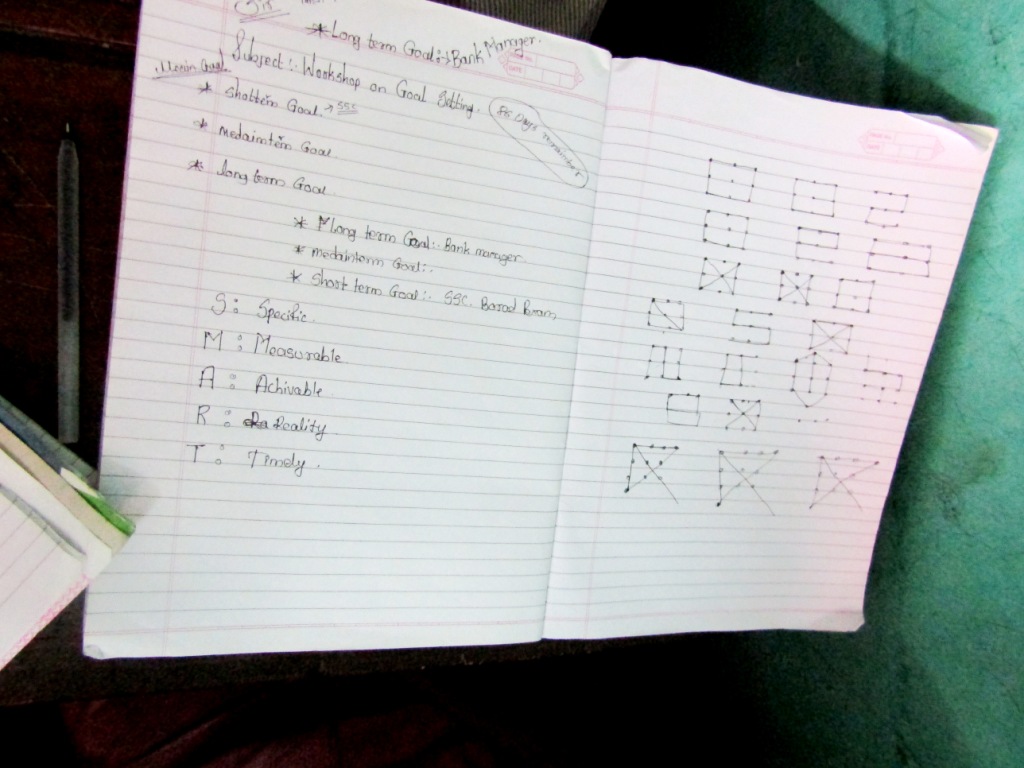 Sir
* Long term Goal:→Bank Manager.
Subject:. Workshop on Goal Setting.
* Shottem Goal.→ SSC
85 Days
* medaintem Goal.
* long term Goal
* long term Goal:. Bank manager.
* medainterm Goal:.
* Short term Goal:. SSC. Borad Exam
S: Specific.
M: Measurable.
A: Achivable.
R: Reality
T: Timely.
DATE